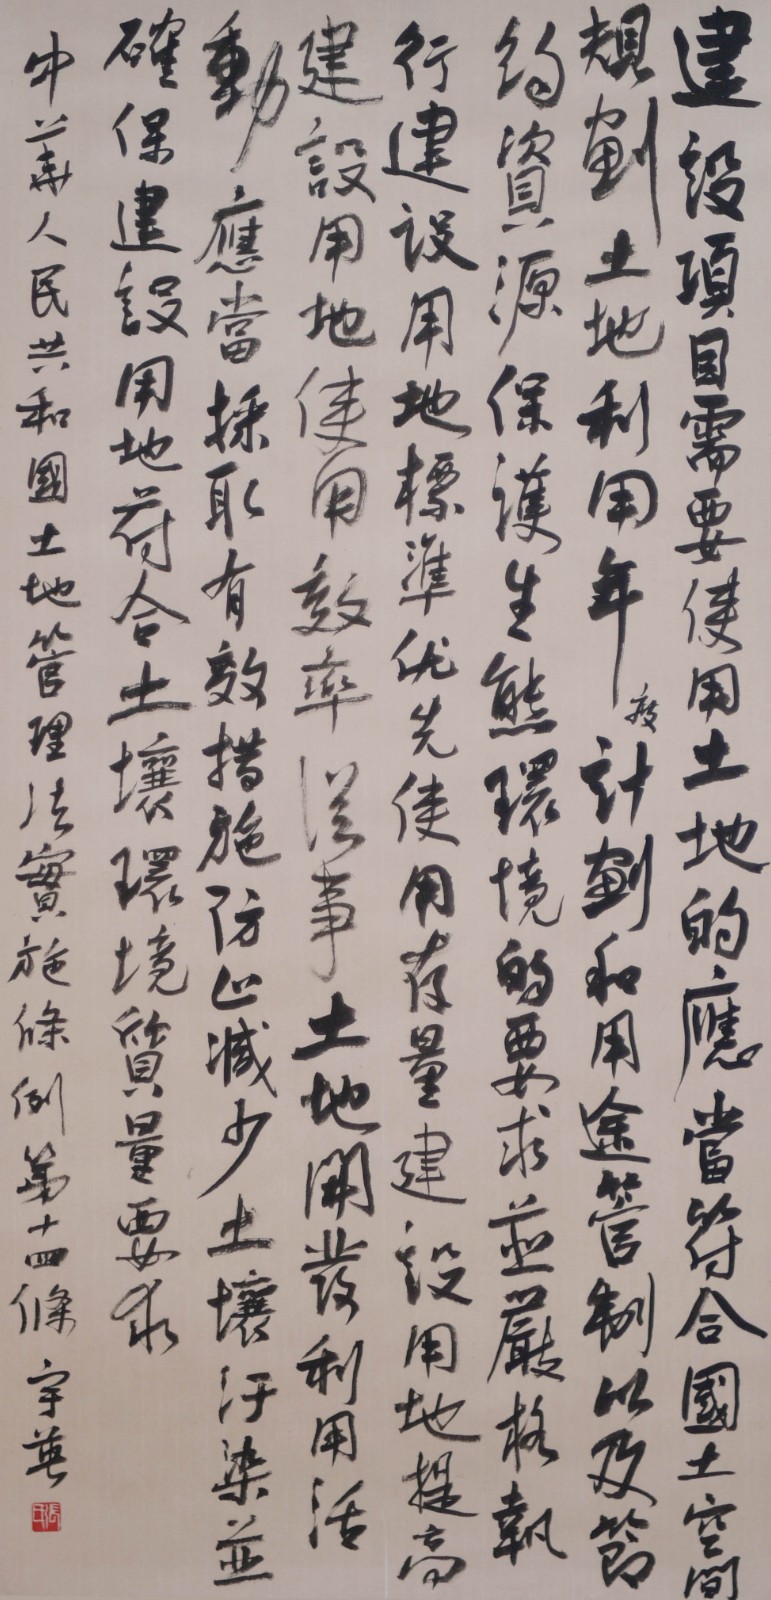 建設項目需要使用土地的應當符合國土空間
規劃土地利用年度計劃和用途管制以及節
約資源保護生態環境的要求並嚴格執
行建设用地標準优先使用存量建設用地提高
建設用地使用效率從事土地開發利用活
動應當採取有效措施防止減少土壤汙染並
確保建設用地符合土壤環境質量要求
中華人民共和國土地管理法實施條例第十四條 宇英